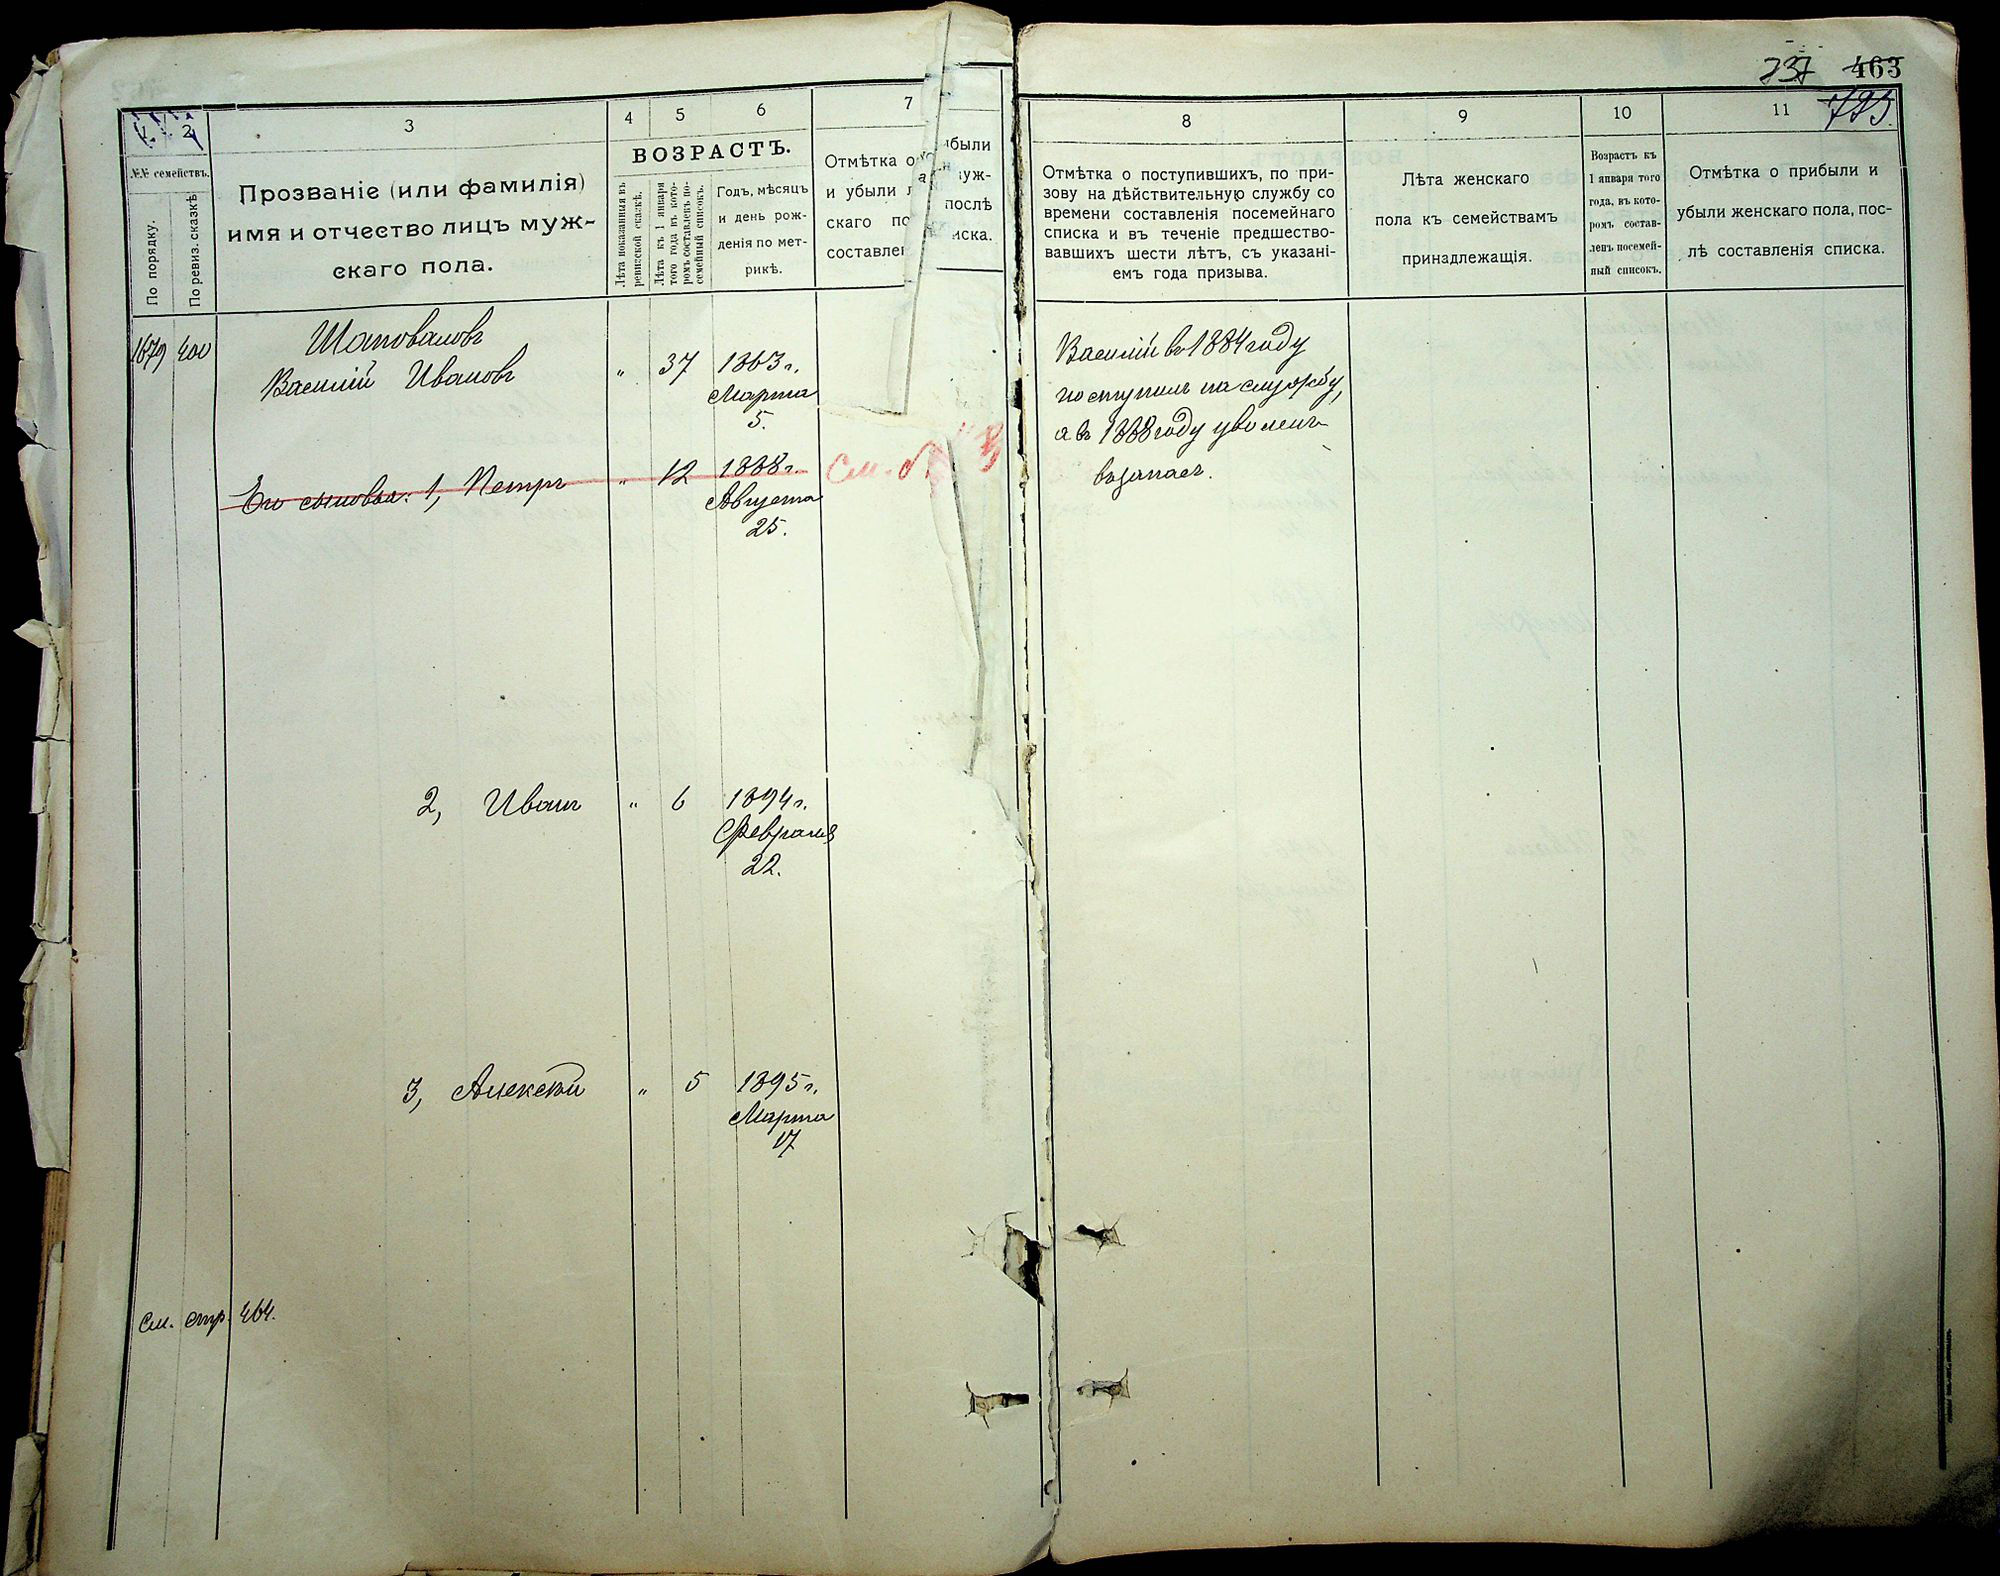 737 463
793
1 2 3 4 5 6 7
№№ семействъ.
По порядку.
По ревиз. сказкѣ
Прозваніе (или фамилія)
имя и отчество лицъ муж-
скаго пола.
ВОЗРАСТЪ.
Лѣта показанныя въ
ревизской сказкѣ.
Лѣта къ 1 января
того года въ кото-
ромъ составленъ по-
семейный списокъ.
Годъ, мѣсяцъ
и день рож-
денія по мет-
рикѣ.
Отмѣтка о были
и убыли уж-
скаго по послѣ
составле иска.
8 9 10 11
Отмѣтка о поступившихъ, по при-
зову на дѣйствительную службу со
времени составленія посемейнаго
списка и въ теченіе предшество-
вавшихъ шести лѣтъ, съ указані-
емъ года призыва.
Лѣта женскаго
пола къ семействамъ
принадлежащія.
Возрастъ къ
1 января того
года, въ кото-
ромъ состав-
ленъ посемей-
ный списокъ.
Отмѣтка о прибыли и
убыли женскаго пола, пос-
лѣ составленія списка.
1679 400 Шаповаловъ
Василій Ивановъ " 37 1863 г.
Марта
5.
Василій въ 1884 году
поступилъ на службу,
а въ 1888 году уволенъ
въ запасъ.
Его сыновья: 1, Петръ " 12 1888 г. См. №
Августа
25.
2, Иванъ " 6 1894 г.
Февраля
22.
3, Алексѣй " 5 1895 г.
Марта
17
См. стр. 464.